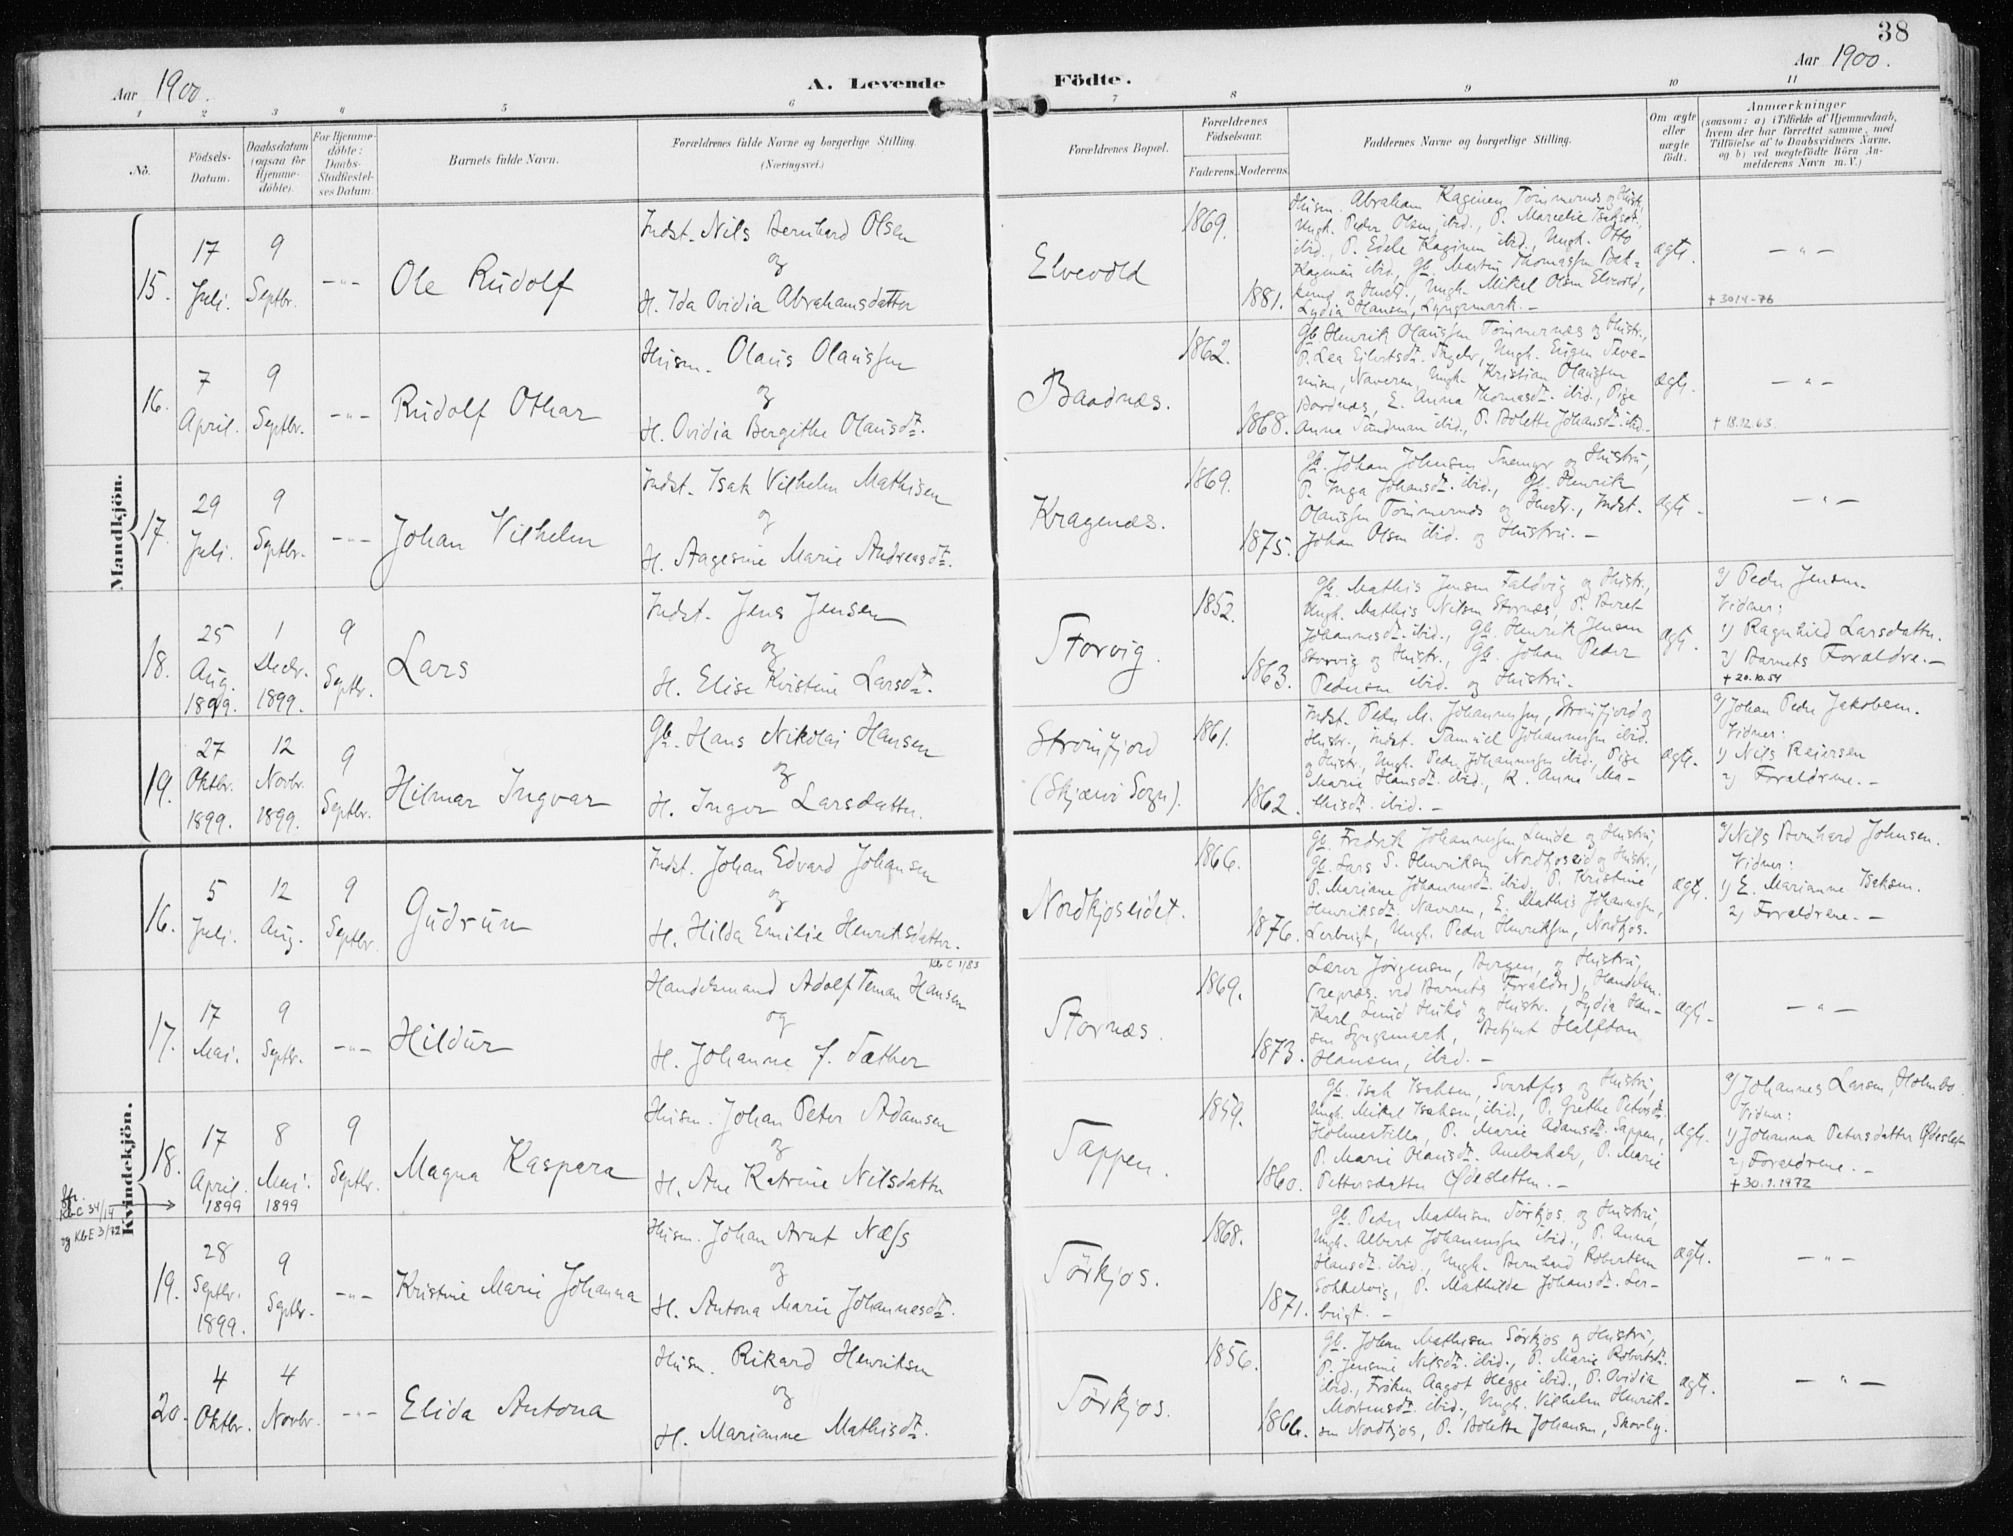 38
Aar 1900.
A. Levende
Födte.
Aar 1900.
1 2 3 4 5 6 7 8 9 10 11
No.
Födsels-Datum.
Daabsdatum (ogsaa for Hjemme-döbte).
For Hjemme-döbte: Daabs-Stadfæstel-ses Datum.
Barnets fulde Navn.
Forældrenes fulde Navne og borgerlige Stilling.
(Næringsvei.)
Forældrenes Bopæl.
Forældrenes Födselsaar.
Faderens. Moderens.
Faddernes Navne og borgerlige Stilling.
Om ægte eller uægte födt.
Anmærkninger
(saasom: a) i Tilfælde af Hjemmedaab,
hvem der har forrettet samme, med
Tilföielse af to Daabsvidners Navne,
og b) ved uægtefödte Börn An-
melderens Navn m. V.)
Mandkjön.
15.
17 Juli.
9 Septbr.
-"-
Ole Rudolf
Indst. Nils Bernhard Olsen
og
H. Ida Ovidia Abrahamsdatter
Elvevold
1869.
1881.
Ungk. Peder Olsen, ibid., P.
Lydia Hansen, Lyngsmark. -
ægte.
- " -
+ 30/4-76
16.
7 April.
9 Septbr.
-"-
Rudolf Othar
Husm. Olaus Olaussen
og
H. Ovidia Bergithe Olausdtr.
Baadnæs.
1862.
1868.
Gb. Henrik Olaussen Tømmernæs og Hustr.,
Navaren, Ungk. Kristian Olaussen
Baadnæs, E. Anna Thomasdtr. ibid., Pige
ibid., P. Bolette Johansdtr. ibid.
ægte.
- " -
+ 18.12.63.
17.
29 Juli.
9 Septbr.
-"-
Johan Vilhelm
Indst. Isak Vilhelm Mathisen
og
H. Aagesine Marie Andreasdtr.
Kragenæs.
1869.
1875.
Gb. Johan Johnsen og Hustru,
P. Inga Johansdtr. ibid., Gb. Henrik
Olaussen Tømmernæs og Hustr., Indst.
Johan Olsen ibid. og Hustru. -
ægte.
- " -
18.
25 Aug. 1899.
1 Decbr. 1899.
9 Septbr.
Lars
Indst. Jens Jensen
og
H. Elise Kristine Larsdtr.
Storvig.
1852.
1863.
Gb. Mathis Jensen Faldvig og Hustr.,
Ungk. Mathis Nilsen Stornæs, P. Beret
Johannesdtr. ibid., Gb. Henrik Jensen
Storvig og Hustr., Gb. Johan Peder
Pedersen ibid. og Hustru.
ægte.
a) Peder Jensen.
Vidner:
1) Ragnhild Larsdatter.
2) Barnets Forældre. -
+ 20.10.54
19.
27 Oktbr. 1899.
12 Novbr. 1899.
9 Septbr.
Hilmar Ingvar
Gb. Hans Nikolai Hansen
og
H. Inger Larsdatter.
Strømfjord
(Skjærvø Sogn).
1861.
1862.
Indst. Peder M. Johannessen, Strømfjord og
Hustr., Indst. Samuel Johannessen ibid.
og Hustr., Ungk. Peder Johannessen ibid., Pige
Marie Hansdtr. ibid., K. Anne Ma-
thisdtr. ibid. -
ægte.
a) Johan Peder Jakobsen.
Vidner:
1) Nils Reiersen
2) Forældrene. -
Kvindekjön.
16.
5 Juli.
12 Aug.
9 Septbr.
Gudrun
Indst. Johan Edvard Johansen
og
H. Hilda Emilie Henriksdatter.
Nordkjoseidet.
1866.
1876.
Gb. Fredrik Johannessen Lunde og Hustru,
Gb. Lars S. Henriksen Nordkjoseid og Hustr.,
P. Mariane Johannesdtr. ibid., P. Kristine
Henriksdtr. Navaren, E. Mathis Johannessen,
Lerbugt, Ungk. Peder Henriksen, Nordkjos.
ægte.
a) Nils Bernhard Johnsen.
Vidner:
1) E. Marianne Isaksen.
2) Forældrene. -
17.
17 Mai.
9 Septbr.
-"-
Hildur
KbC 1/83
Handelsmand Adolf Teman Hansen
og
H. Johanne f. Sæther
Stornæs.
1869.
1873.
Lærer Jørgensen, Bergen, og Hustru,
(repræs. ved Barnets Forældre), Handelsm.
Karl Lund Hukø og Hustr., Lydia Han-
sen Lyngsmark, Betjent Halfdan
Hansen, ibid. -
ægte.
- " -
18.
17 April. 1899
8 Mai. 1899
9 Septbr.
Magna Kaspara
Husm. Johan Peter Adamsen
og
H. Ane Katrine Nilsdatter
Tappen.
1859.
1860.
Gb. Isak Isaksen, Svartfos og Hustru,
Ungk. Mikal Isaksen, ibid., P. Grethe Petersdtr.
P. Marie Adamsdtr. Tappen,
P. Marie Olausdtr. P. Marie
Pettersdatter Ødesletten. -
ægte.
a) Johannes Larsen, Holmbo.
Vidner:
1) Johanna Petersdatter Ødeslett
2) Forældrene. -
+ 30.1.1972
KbC 34/14
og KbE 3/72
19.
28 Septbr. 1899.
9 Septbr.
-"-
Kristine Marie Johanna
Husm. Johan Arnt Næss
og
H. Antona Marie Johannesdtr.
Sørkjos.
1868.
1871.
Gb. Peder Mathisen Sørkjos og Hustru,
Ungk. Albert Johannessen ibid., P. Anna
Hansdtr. ibid., Ungk. Bernhard Robertsen
Sokkelvig, P. Mathilde Johansdtr. Ler-
bugt. -
ægte.
- " -
20.
4 Oktbr.
4 Novbr.
-"-
Elida Antona
Husm. Rikard Henriksen
og
H. Marianne Mathisdtr.
Sørkjos.
1856.
1866.
Gb. Johan Mathisen Sørkjos og Hustru,
P. Jensine Nilsdtr. ibid., P. Marie Robertsdtr.
ibid., Frøken Aagot Hegge ibid., P. Ovidia
Mortensdtr. ibid., Ungk. Vilhelm Henrik-
sen Nordkjos, P. Bolette Johansen, Skovly.
ægte.
- " -